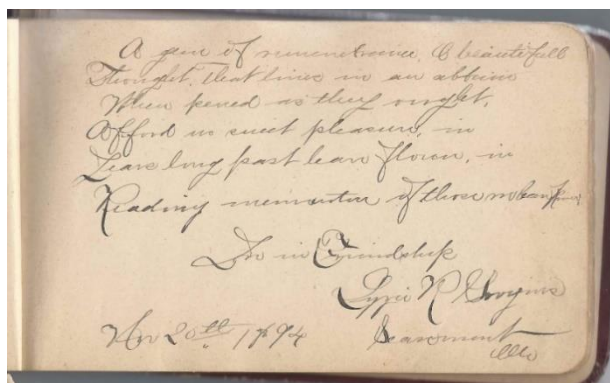 A gem of rememberance, O beautifull
Thought, that lines in an album
When pened as they ought,
Afford us sweet pleasure, in
Years long past have flown, in
Reading mementoes of those
In Friendship
Nov 20th 1894